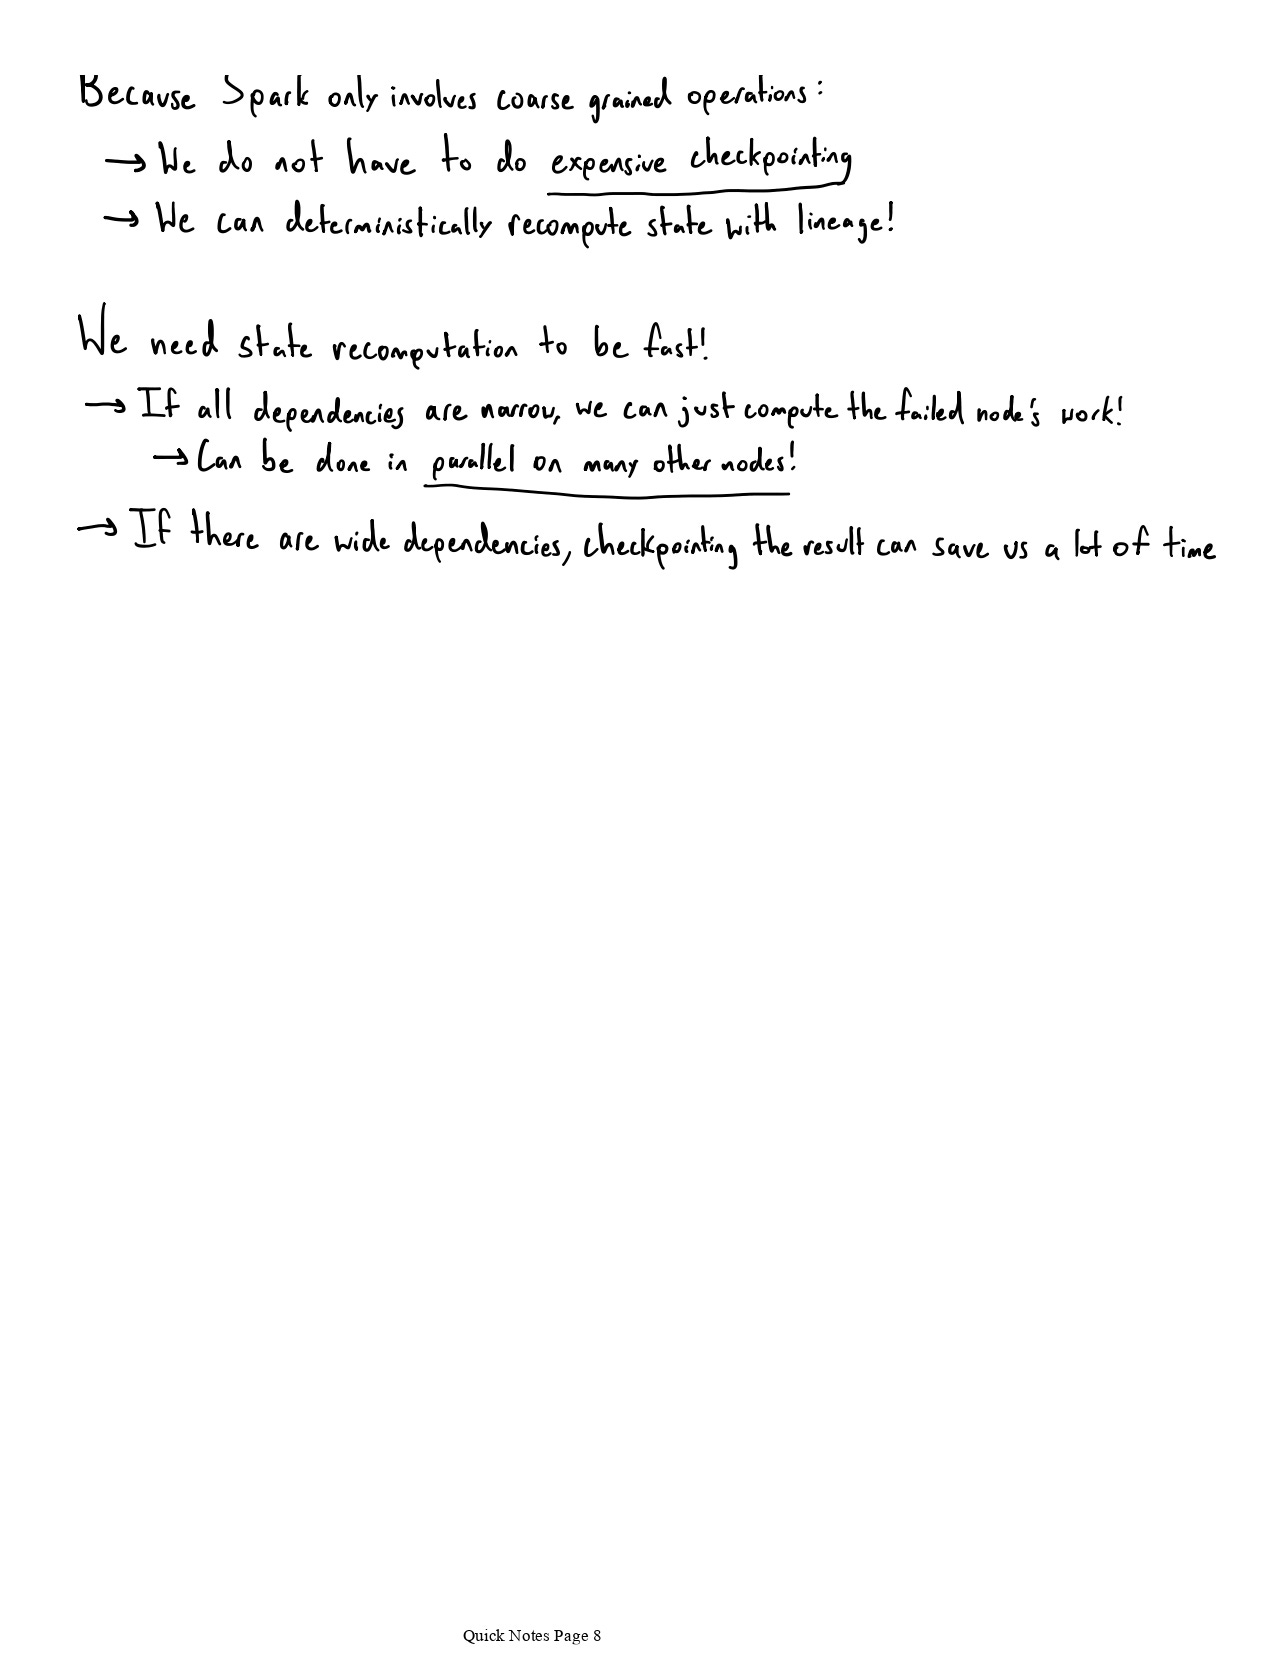 Because Spark only involves coarse grained operations:
→ We do not have to do expensive checkpointing
→ We can deterministically recompute state with lineage!
We need state recomputation to be fast!
→ If all dependencies are narrow, we can just compute the failed node's work!
→ Can be done in parallel on many other nodes!
→ If there are wide dependencies, checkpointing the result can save us a lot of time
Quick Notes Page 8